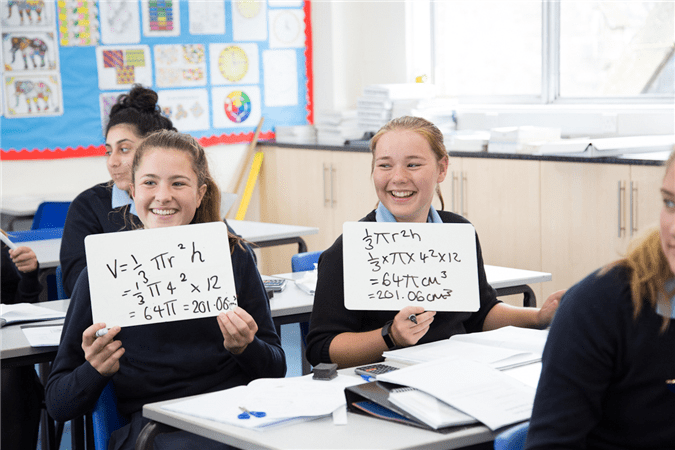 V = ⅓πr²h
= ⅓π4² × 12
= 64π = 201.06
⅓πr²h
⅓×π×4²×12
= 64πcm³
= 201.06cm³